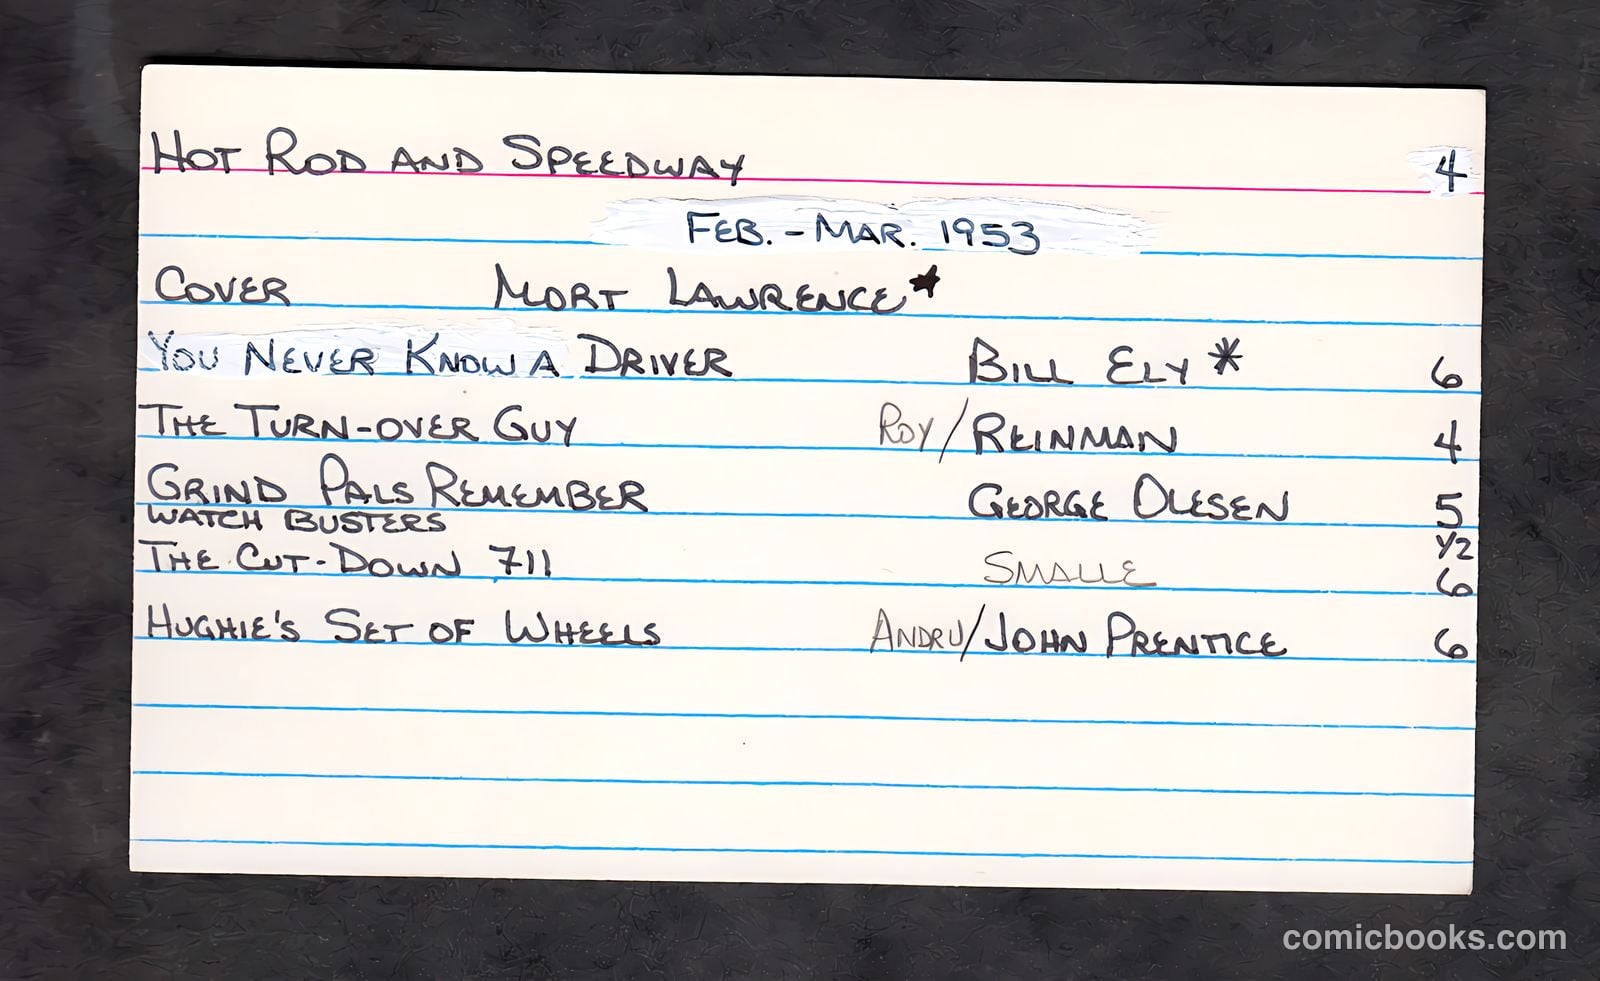 HOT ROD AND SPEEDWAY 4
FEB. - MAR. 1953
COVER MORT LAWRENCE★
YOU NEVER KNOW A DRIVER BILL ELY * 6
THE TURN-OVER GUY ROY/REINMAN 4
GRIND PALS REMEMBER GEORGE OLESEN 5
WATCH BUSTERS 1/2
THE CUT-DOWN 711 SMALLE 6
HUGHIE'S SET OF WHEELS ANDRU/JOHN PRENTICE 6
comicbooks.com